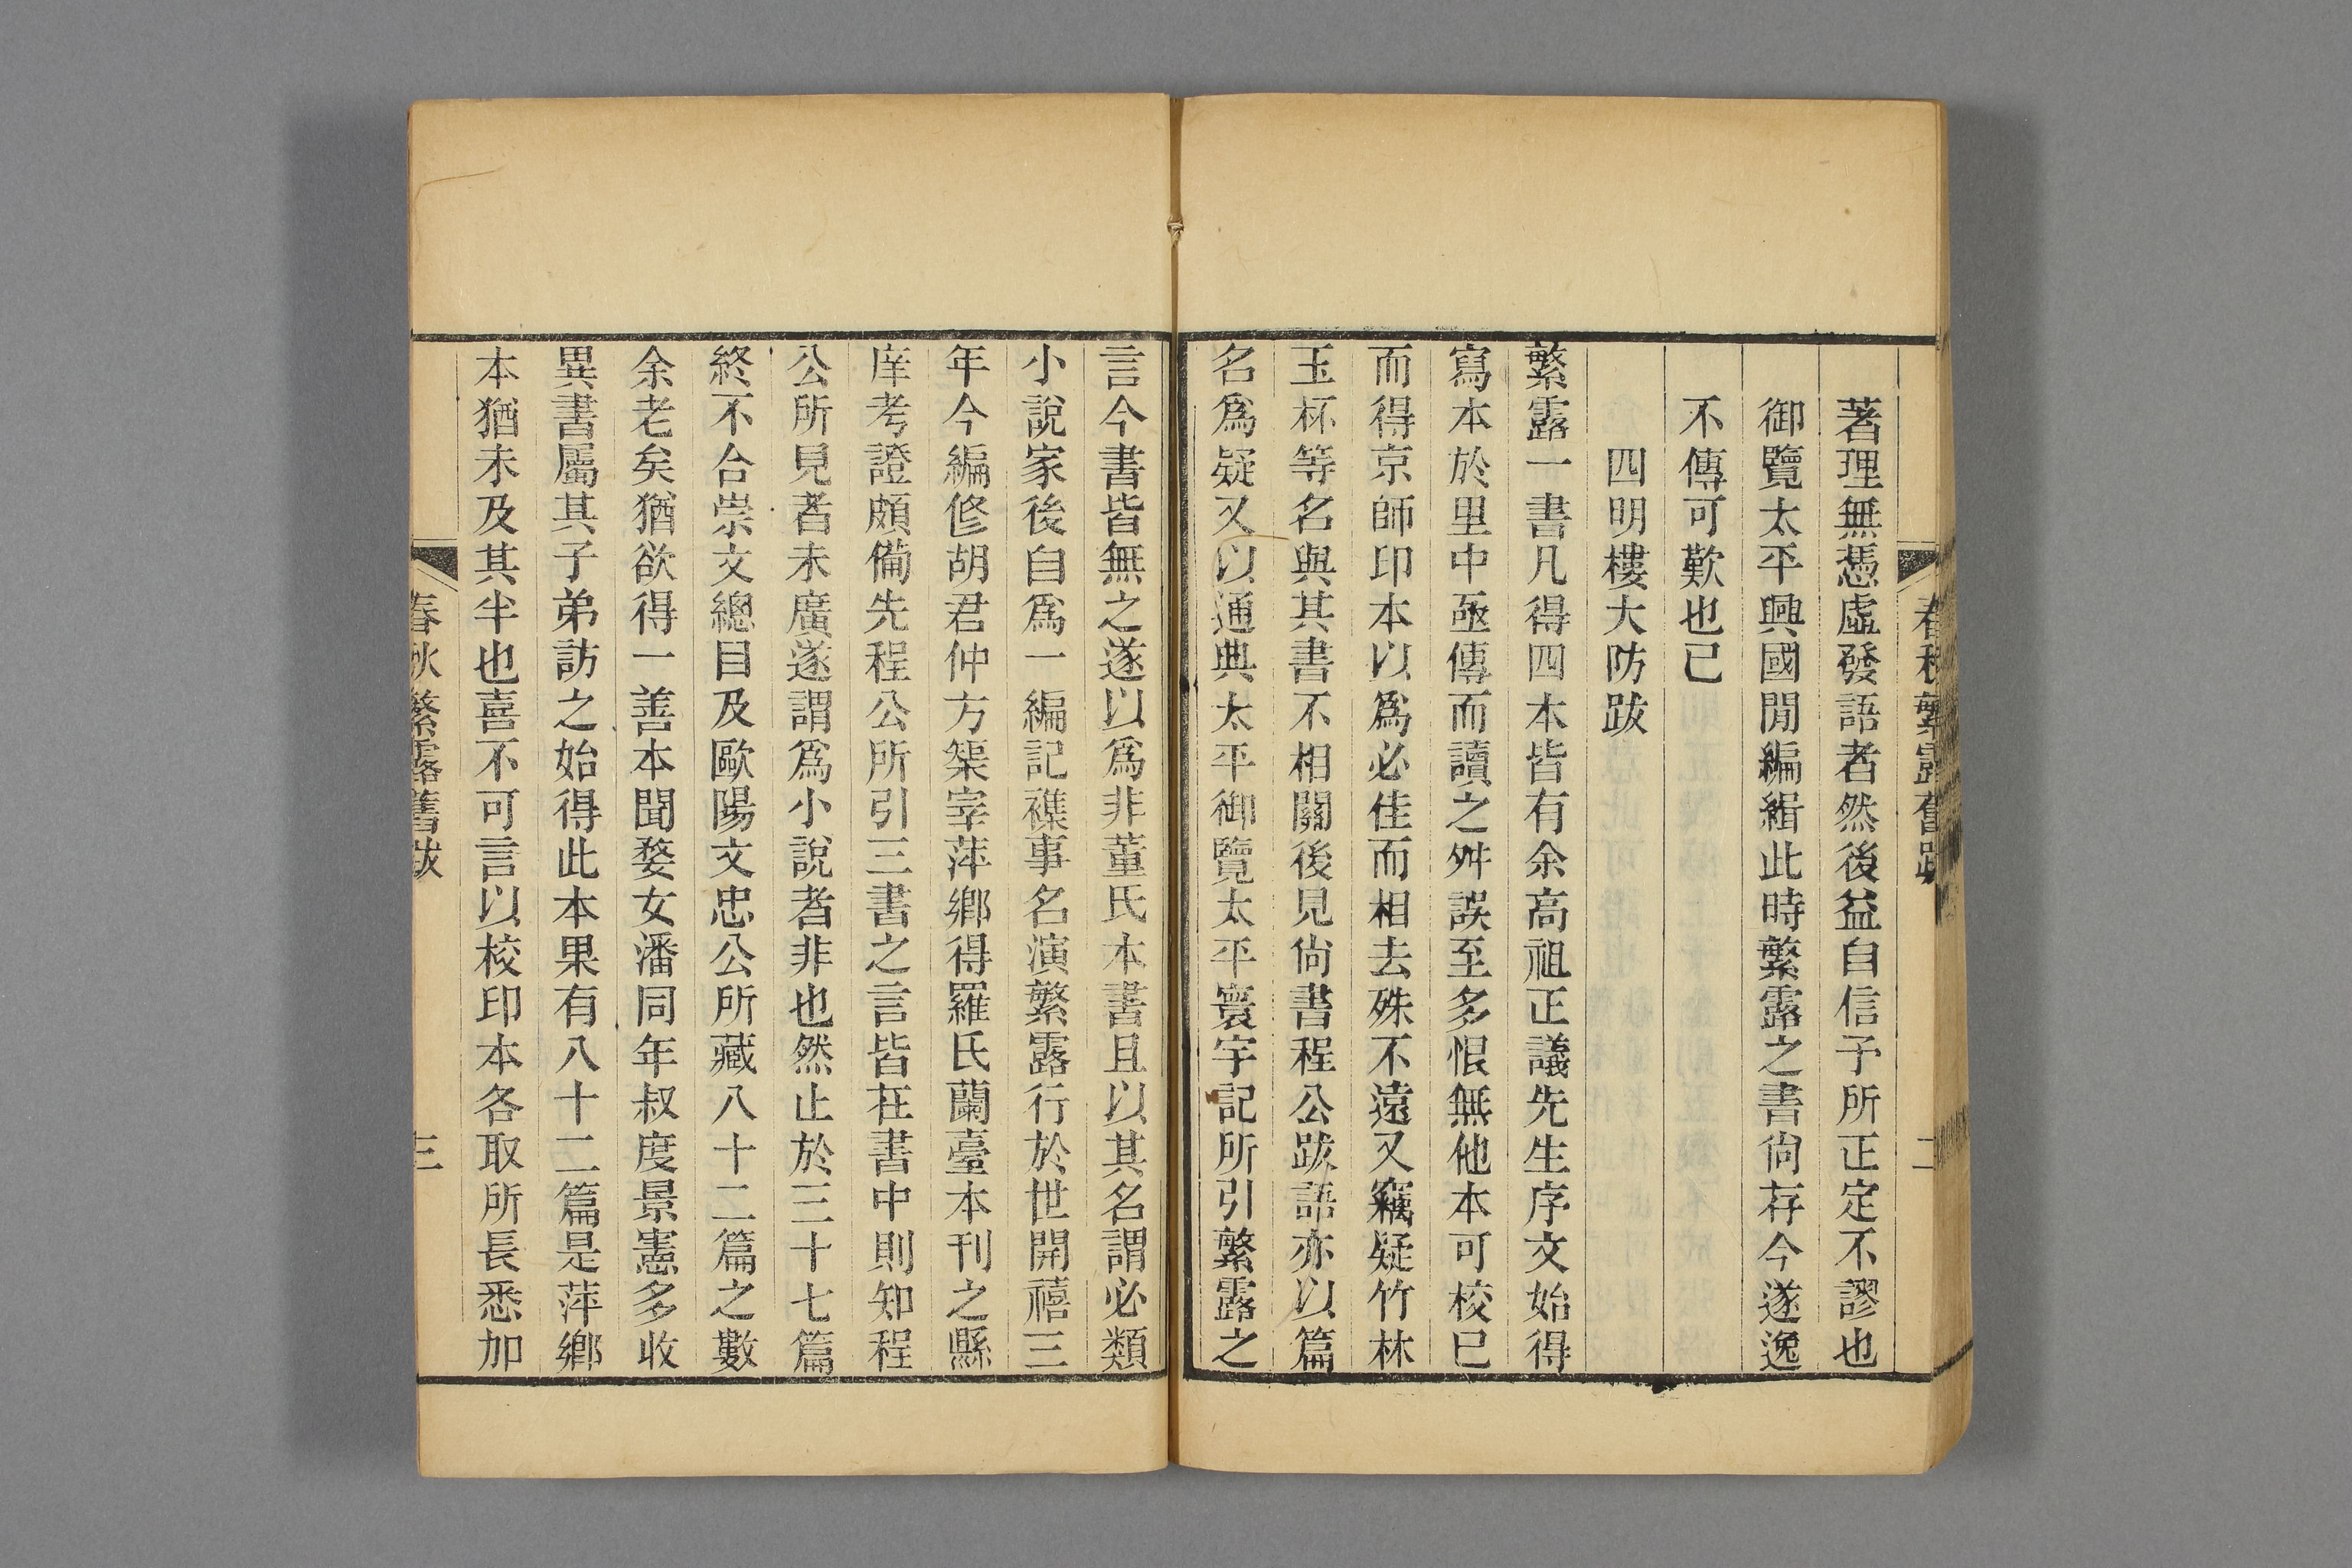 春秋繁露舊跋
二
著理無憑虛發語者然後益自信予所正定不謬也
御覽太平興國閒編緝此時繁露之書尙存今遂逸
不傳可歎也已
四明樓大防跋
繁露一書凡得四本皆有余高祖正議先生序文始得
寫本於里中亟傳而讀之舛誤至多恨無他本可校已
而得京師印本以爲必佳而相去殊不遠又竊疑竹林
玉杯等名與其書不相關後見尙書程公跋語亦以篇
名爲疑又以通典太平御覽太平寰宇記所引繁露之
言今書皆無之遂以爲非董氏本書且以其名謂必類
小說家後自爲一編記襍事名演繁露行於世開禧三
年今編修胡君仲方槼宰萍鄉得羅氏蘭臺本刊之縣
庠考證頗備先程公所引三書之言皆在書中則知程
公所見者未廣遂謂爲小說者非也然止於三十七篇
終不合崇文總目及歐陽文忠公所藏八十二篇之數
余老矣猶欲得一善本聞婺女潘同年叔度景憲多收
異書屬其子弟訪之始得此本果有八十二篇是萍鄉
本猶未及其半也喜不可言以校印本各取所長悉加
春秋繁露舊跋
三